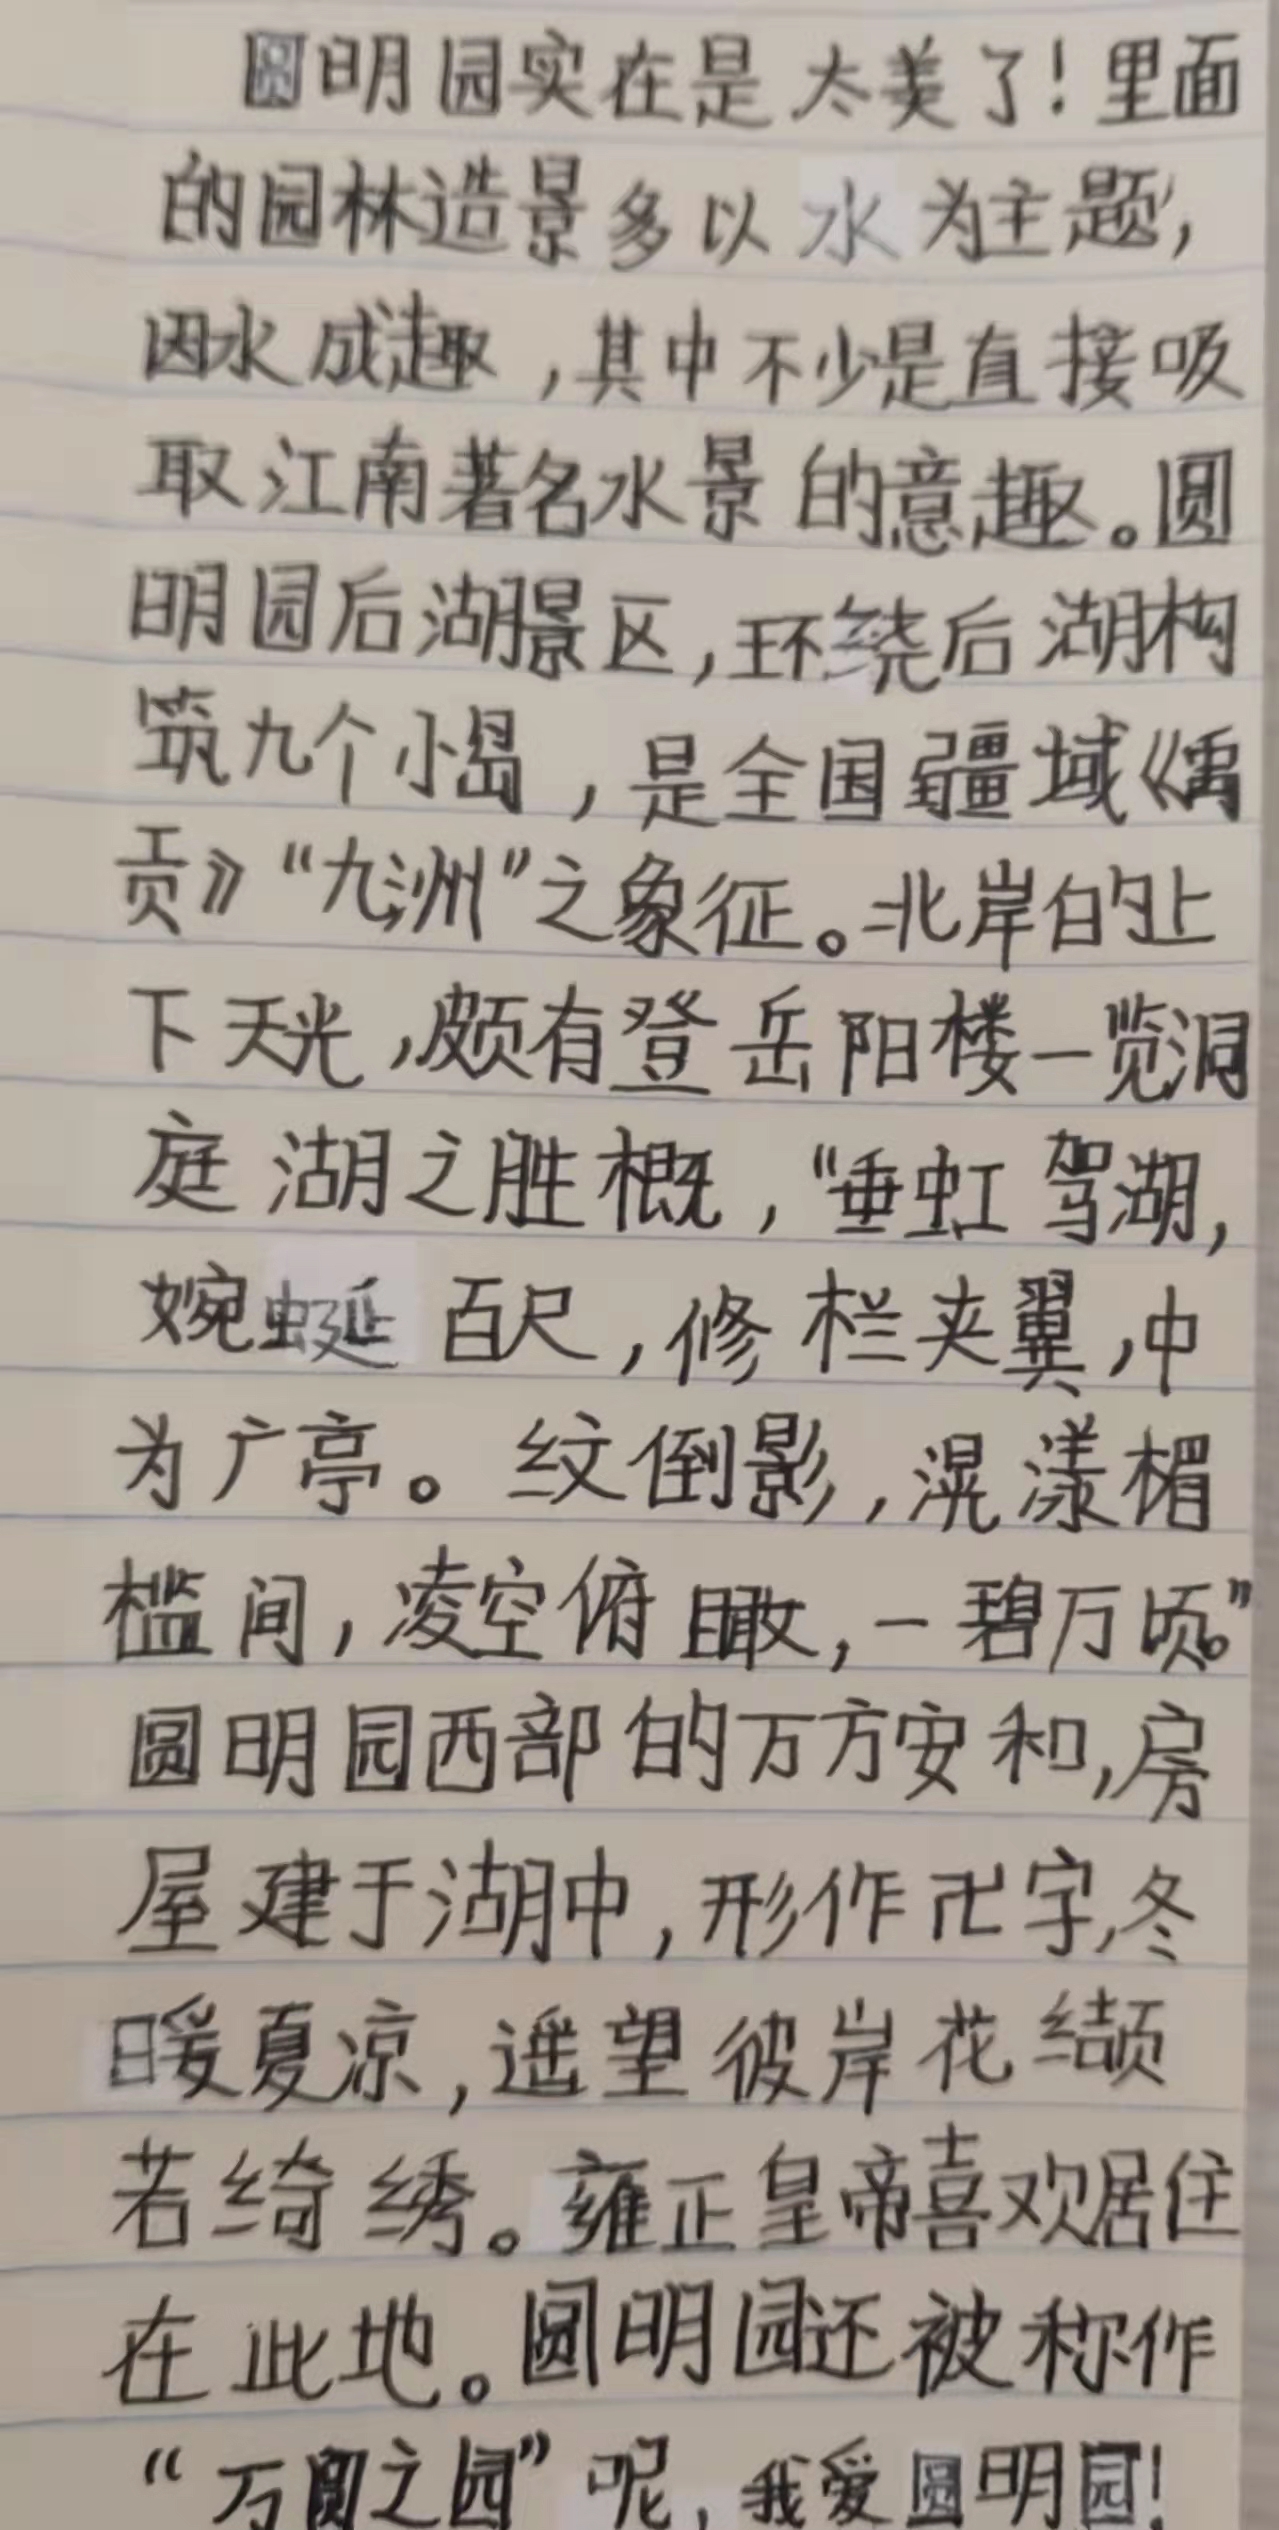 圆明园实在是太美了！里面
的园林造景多以水为主题，
因水成趣，其中不少是直接吸
取江南著名水景的意趣。圆
明园后湖景区，环绕后湖构
筑九个小岛，是全国疆域《禹
贡》“九洲”之象征。北岸的上
下天光，颇有登岳阳楼一览洞
庭湖之胜概，“垂虹驾湖，
婉蜒百尺，修栏夹翼，中
为广亭。纹倒影，滉漾楣
槛间，凌空俯瞰，一碧万顷。”
圆明园西部的万方安和，房
屋建于湖中，形作卍字，冬
暖夏凉，遥望彼岸花缬
若绮绣。雍正皇帝喜欢居住
在此地。圆明园还被称作
“万圆之园”呢，我爱圆明园！